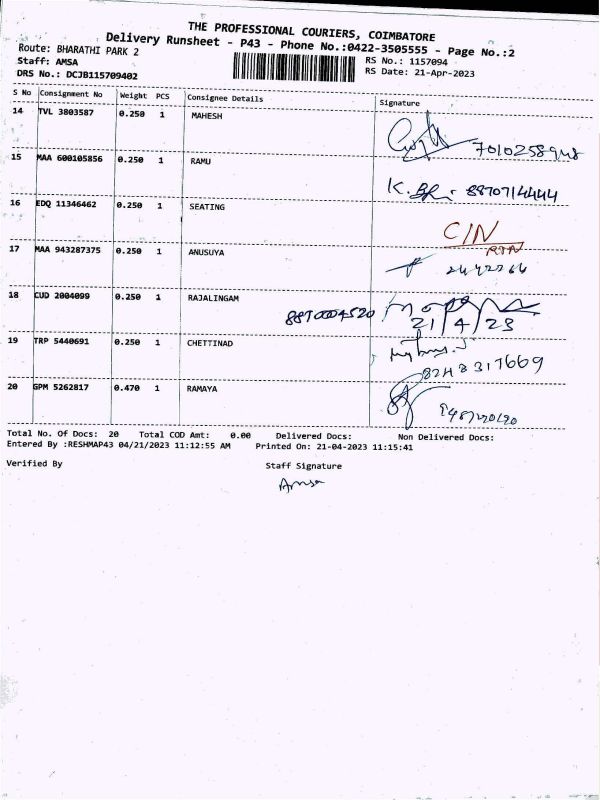 THE PROFESSIONAL COURIERS, COIMBATORE
Delivery Runsheet - P43 - Phone No.:0422-3505555 - Page No.:2
Route: BHARATHI PARK 2
RS No.: 1157094
Staff: AMSA
RS Date: 21-Apr-2023
DRS No.: DCJB115709402
S No Consignment No Weight PCS Consignee Details Signature
14 TVL 3803587 0.250 1 MAHESH
15 MAA 600105856 0.250 1 RAMU
K. 8870714444
16 EDQ 11346462 0.250 1 SEATING
C/N
RTN
17 MAA 943287375 0.250 1 ANUSUYA
18 CUD 2004099 0.250 1 RAJALINGAM
8870004520
21/4/23
19 TRP 5440691 0.250 1 CHETTINAD
20 GPM 5262817 0.470 1 RAMAYA
Total No. Of Docs: 20 Total COD Amt: 0.00 Delivered Docs: Non Delivered Docs:
Entered By :RESHMAP43 04/21/2023 11:12:55 AM Printed On: 21-04-2023 11:15:41
Verified By Staff Signature
Amsa